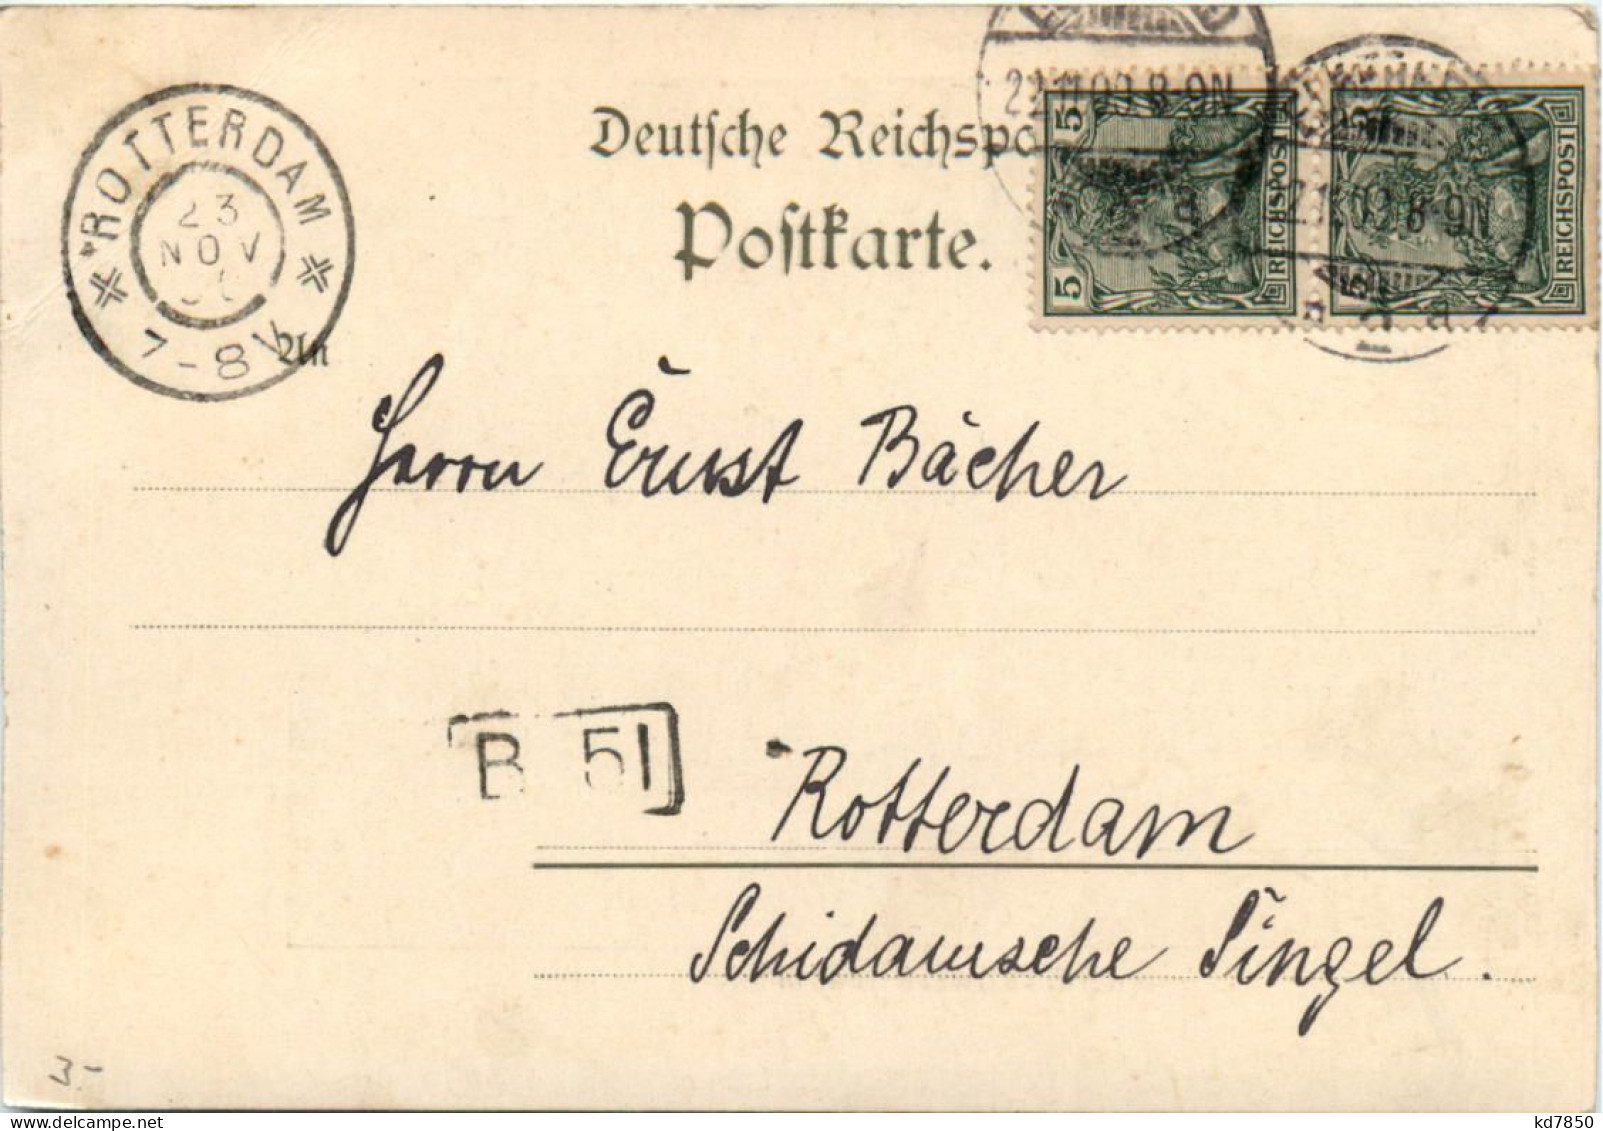 22.11.00.8-9N
Deutsche Reichspo
Postkarte.
5 REICHSPOST
5 REICHSPOST
22.11.00.8-9N
ROTTERDAM
23
NOV
7-8V
An
Herrn Ernst Bächer
B 51
Rotterdam
Schidamsche Singel.
3-
kd7850